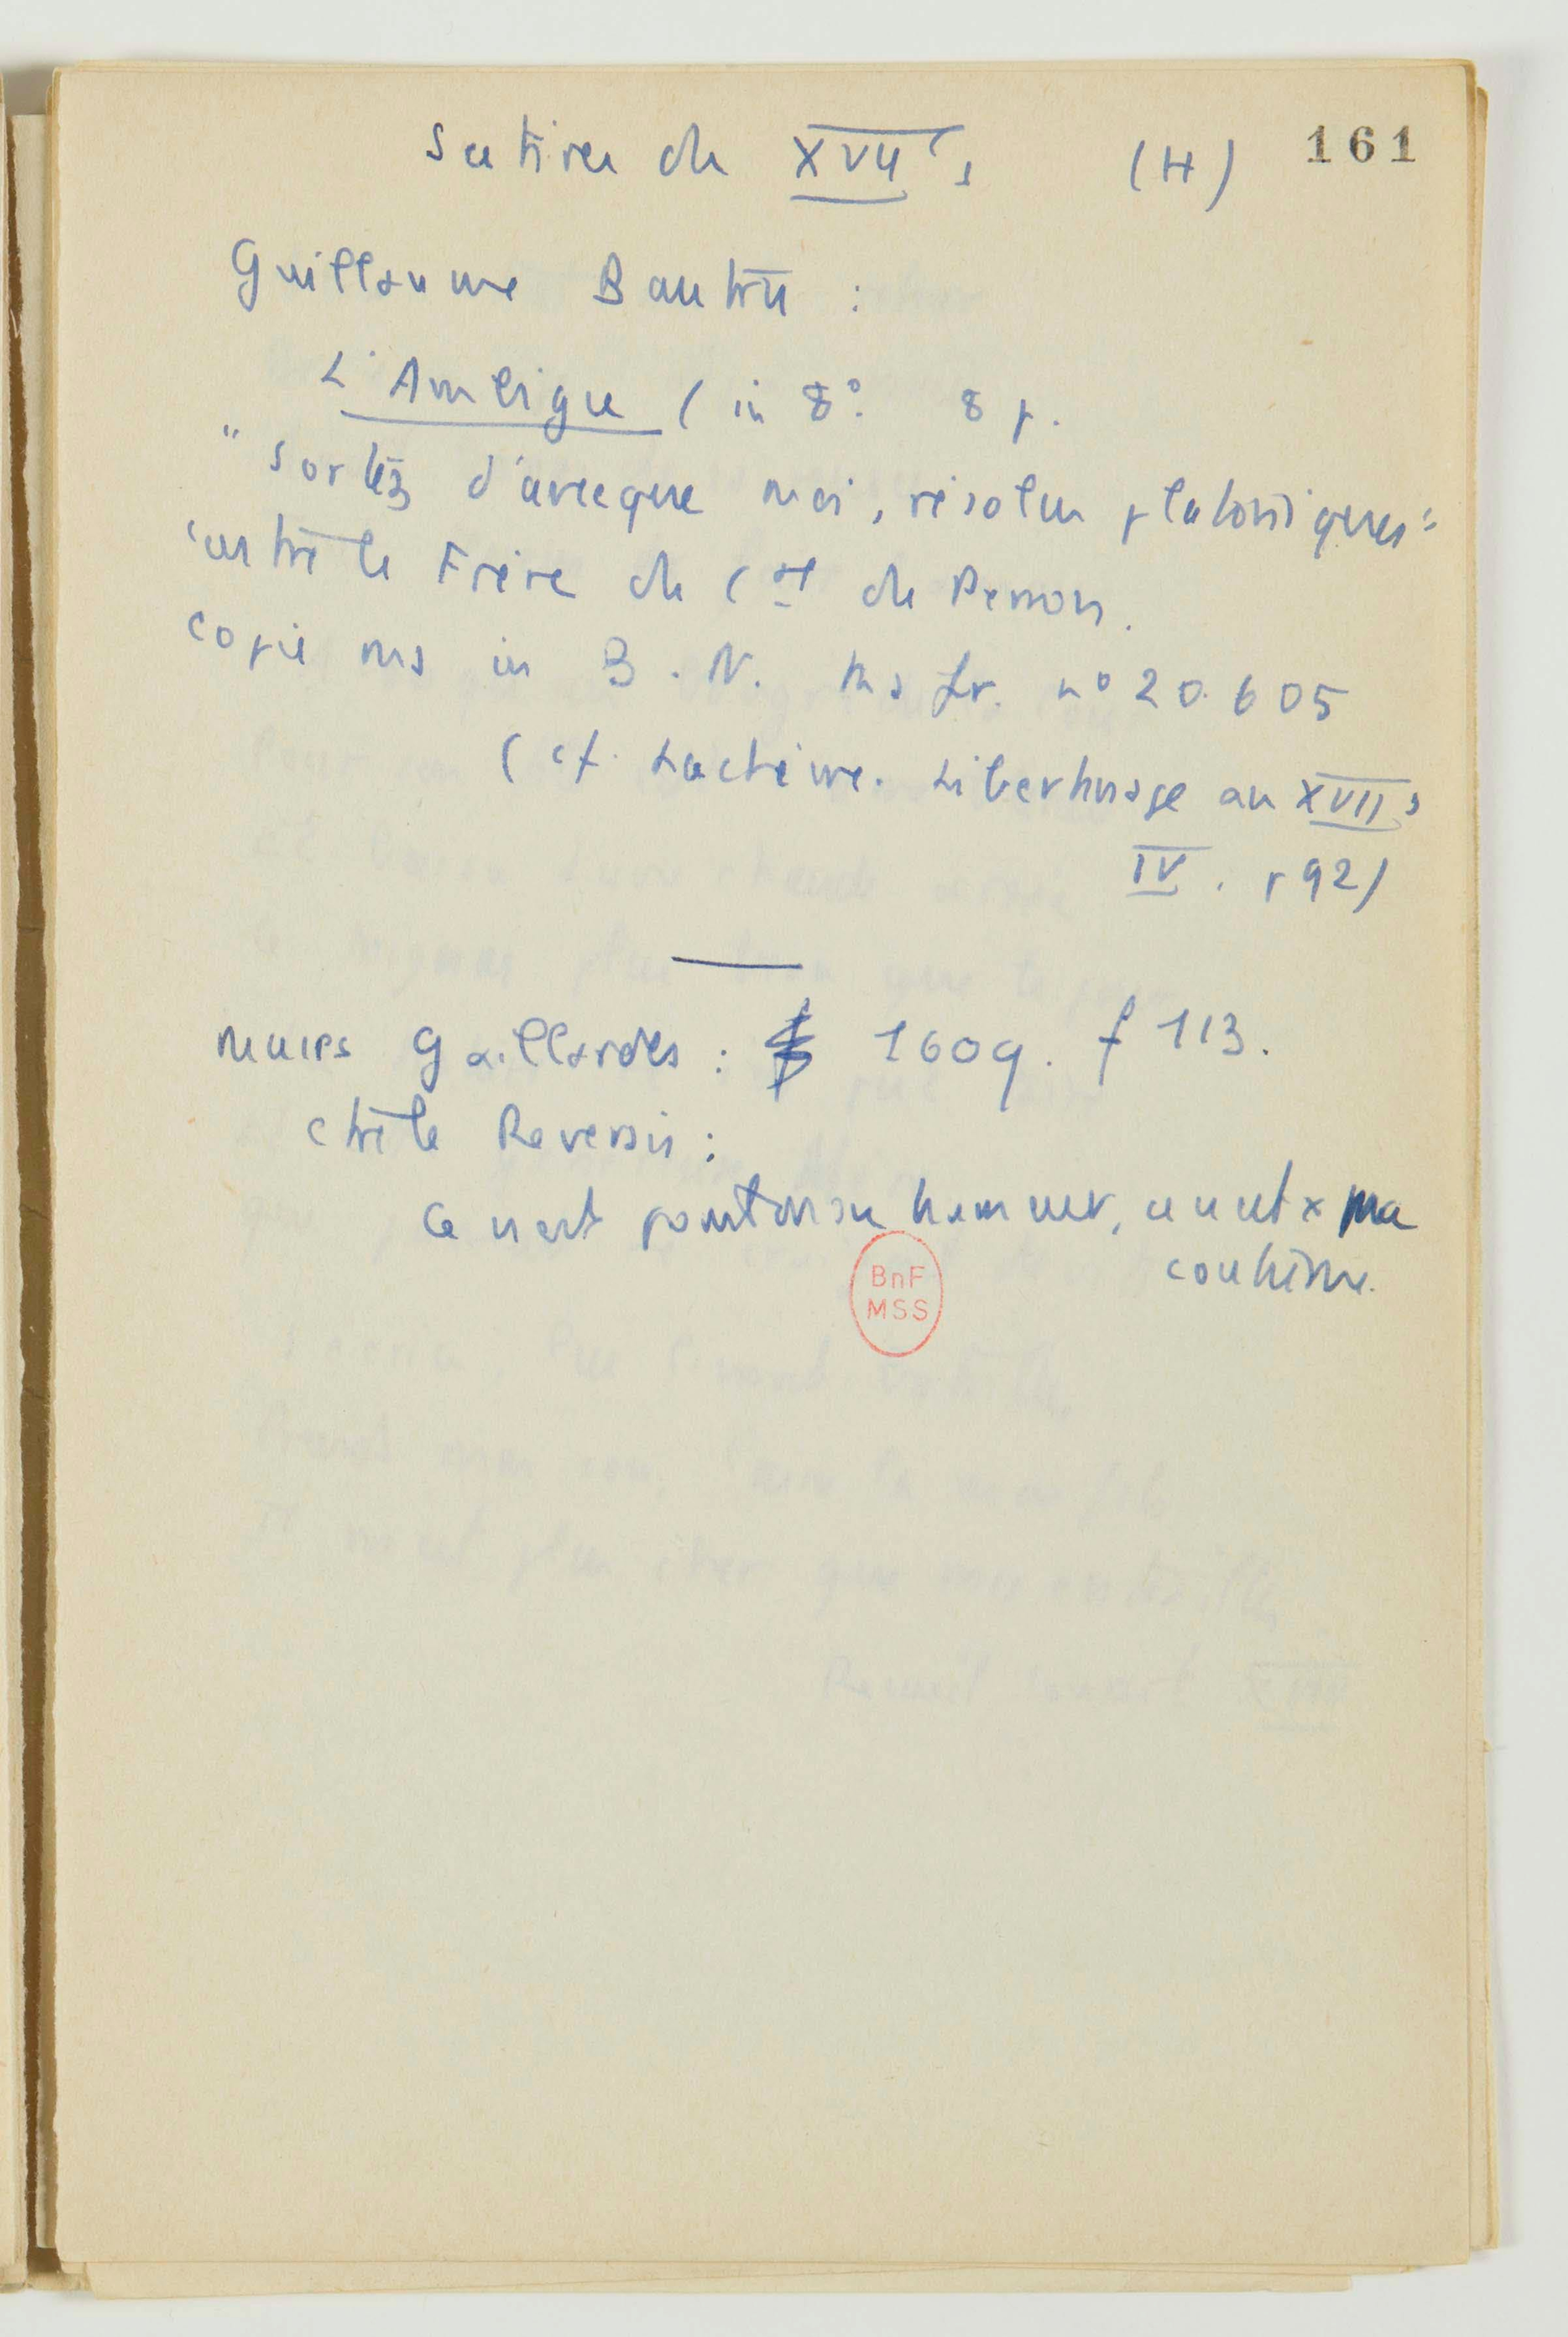 Satires du XVII s (H) 161
Guillaume Bautru :
L'Ambigue ( in 8°. 8 p.
" Sortez d'avecque moi, résolus platoniques "
contre le Frère du Cal du Perron.
copie ms in B. N. Ms fr. n° 20.605
( cf. Lachèvre. Libertinage au XVII s
IV. p 92)
Muses gaillardes : 1609. f 113.
ctre le Reversis :
Ce n'est point mon humeur, ce n'est x ma
coutume.
BnF
MSS